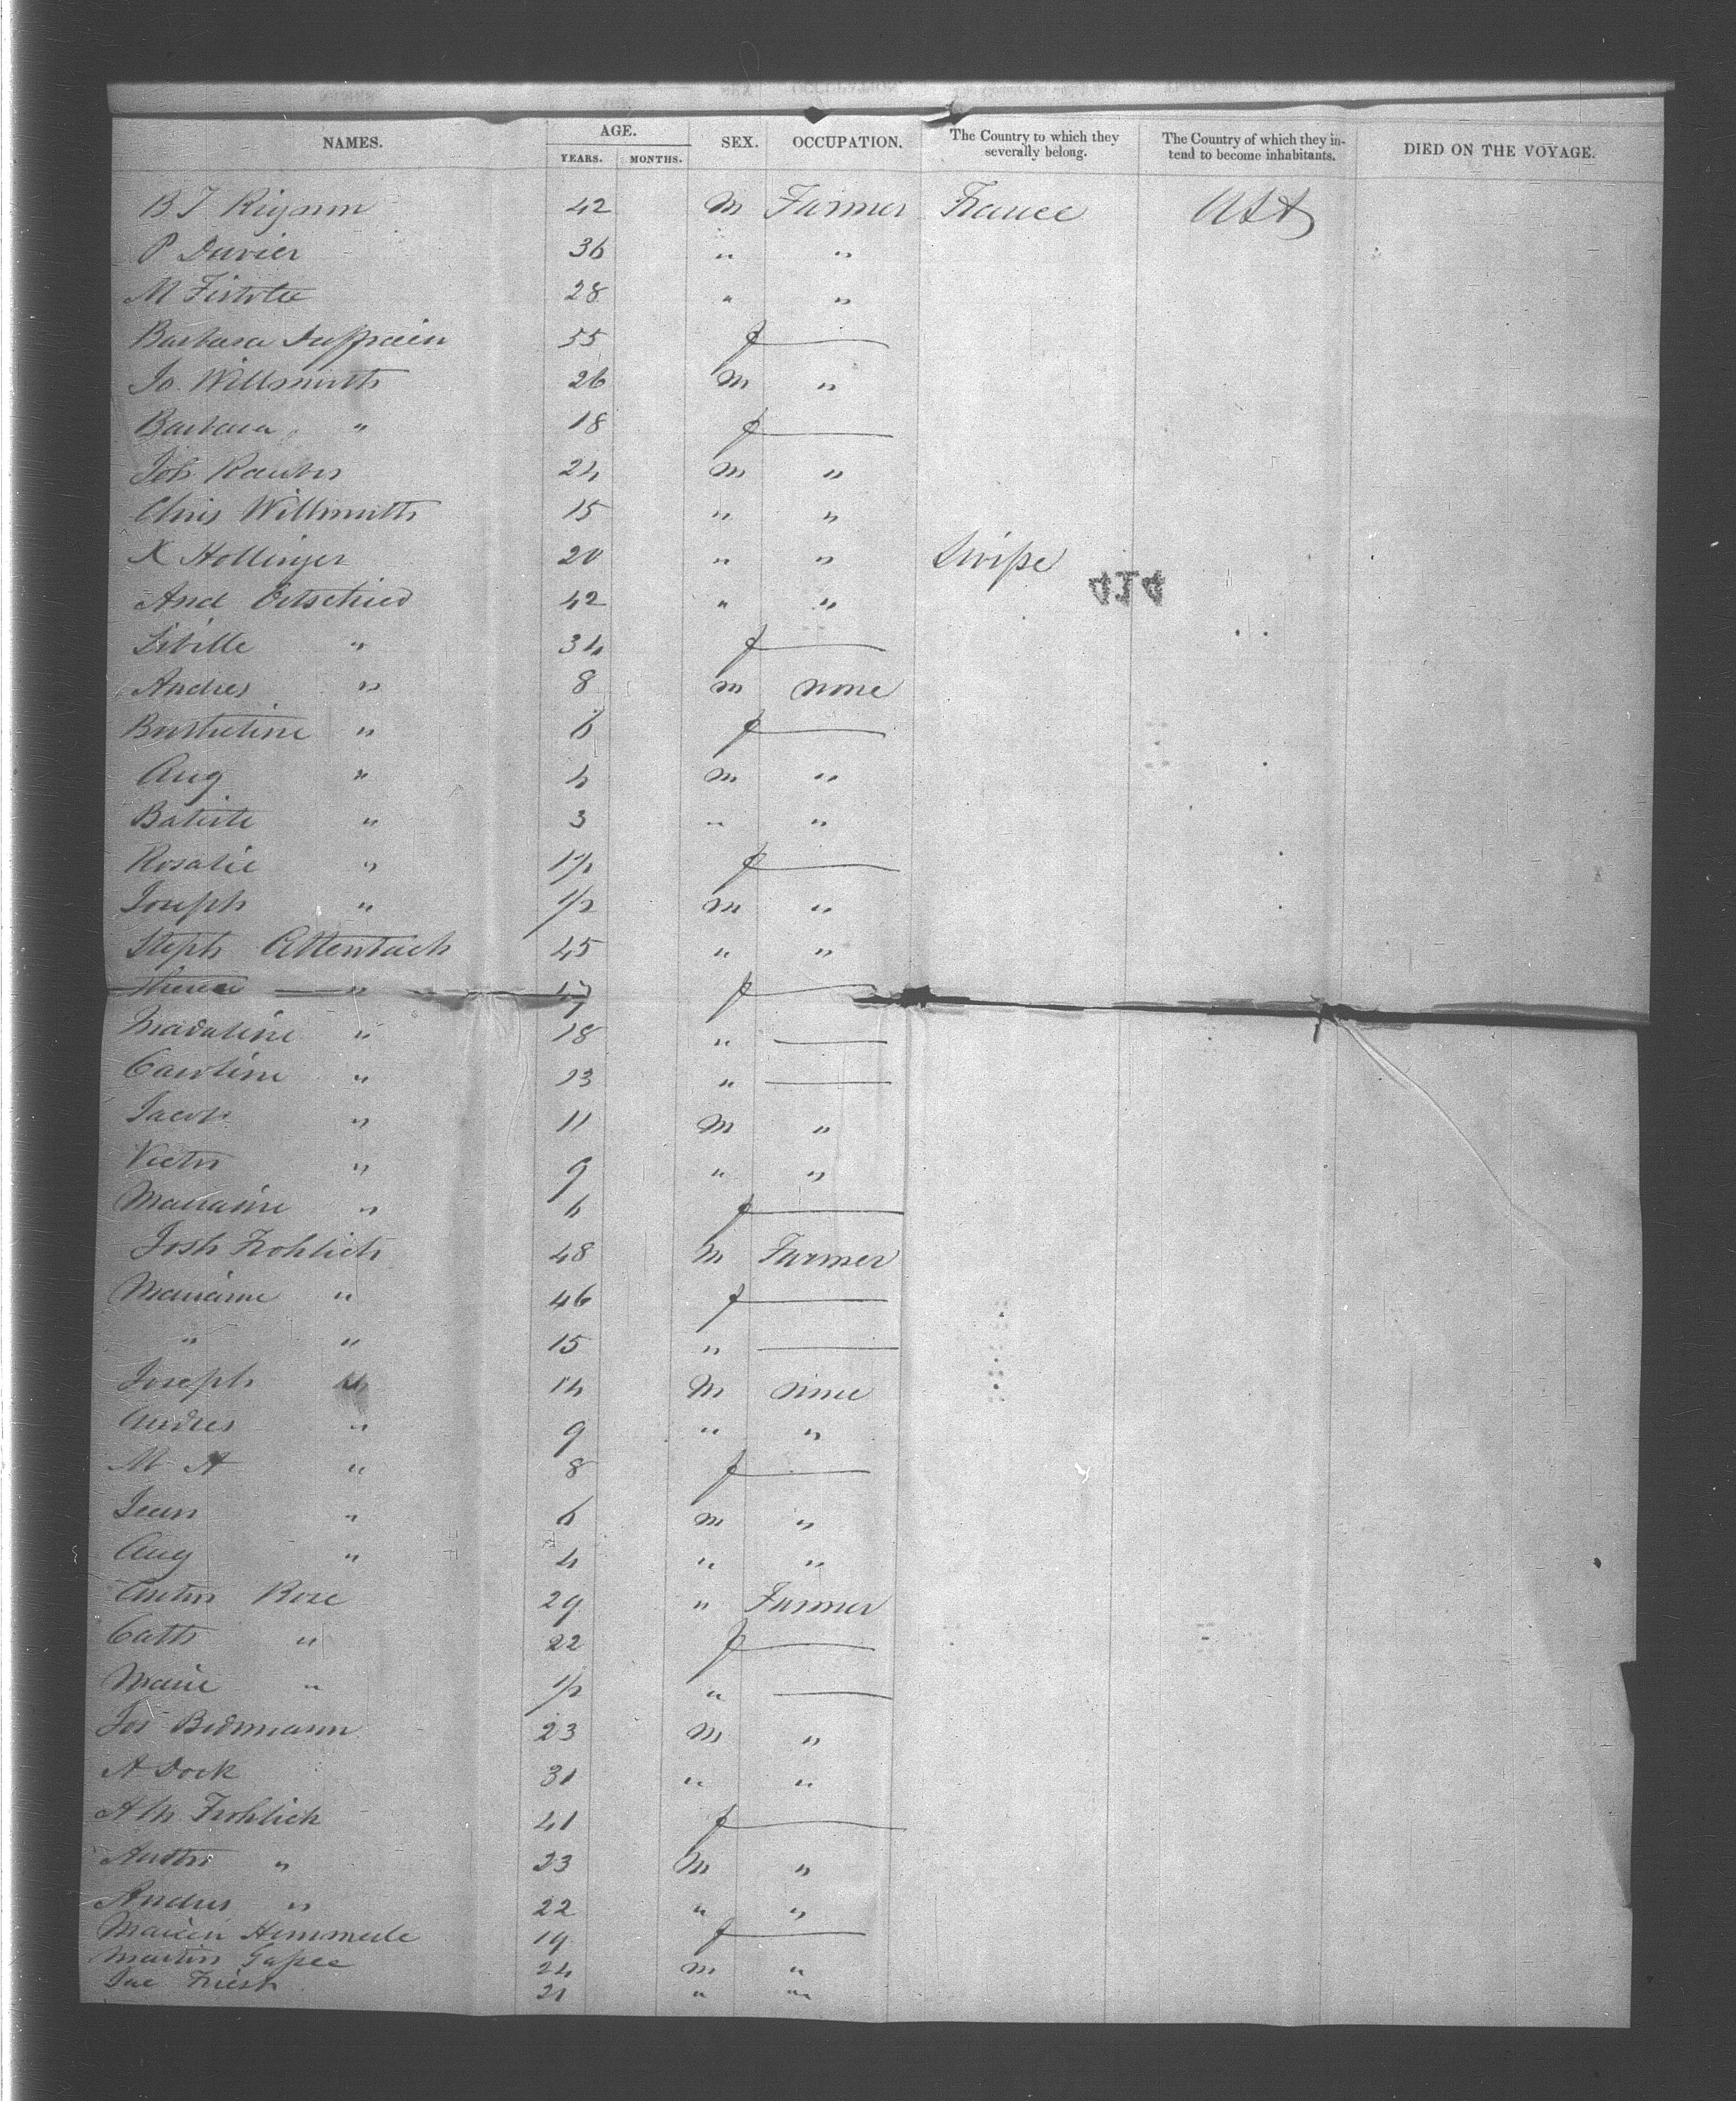 NAMES. AGE. SEX. OCCUPATION. The Country to which they severally belong. The Country of which they intend to become inhabitants. DIED ON THE VOYAGE.
YEARS. MONTHS.
B J 42 m Farmer France USA
P Davier 36 " "
M 28 " "
Barbara 55 f
Jo. Willsmuth 26 m "
Barbara " 18 f
Joh 24 m "
Chris Willsmuth 15 " "
X Hollinger 20 " " Swisse
414
And Oetschied 42 " "
Sibille " 34 f
Andres " 8 m none
" 6 f
Aug " 4 m "
Batiste " 3 " "
Rosalie " 1 1/2 f
Joseph " 1/2 m "
Steph Altenbach 45 " "
" f
Madaline " 18 "
Caroline " 13 "
Jacob " 11 m "
Victor " 9 " "
Marianne " 6 f
Josh Frohlich 48 m Farmer
Marianne " 46 f
" " 15 "
Joseph 14 m none
Andres " 9 " "
M A " 8 f
Jean " 6 m "
Aug " 4 " "
Anton Rose 29 " Farmer
Cath " 22 f
Marie " 1/2 "
Jos Bidmann 23 m "
A Dock 31 " "
A M Frohlich 41 f
" 23 m "
Andres " 22 " "
Himmerle 19 f
Martin 24 m "
21 " "